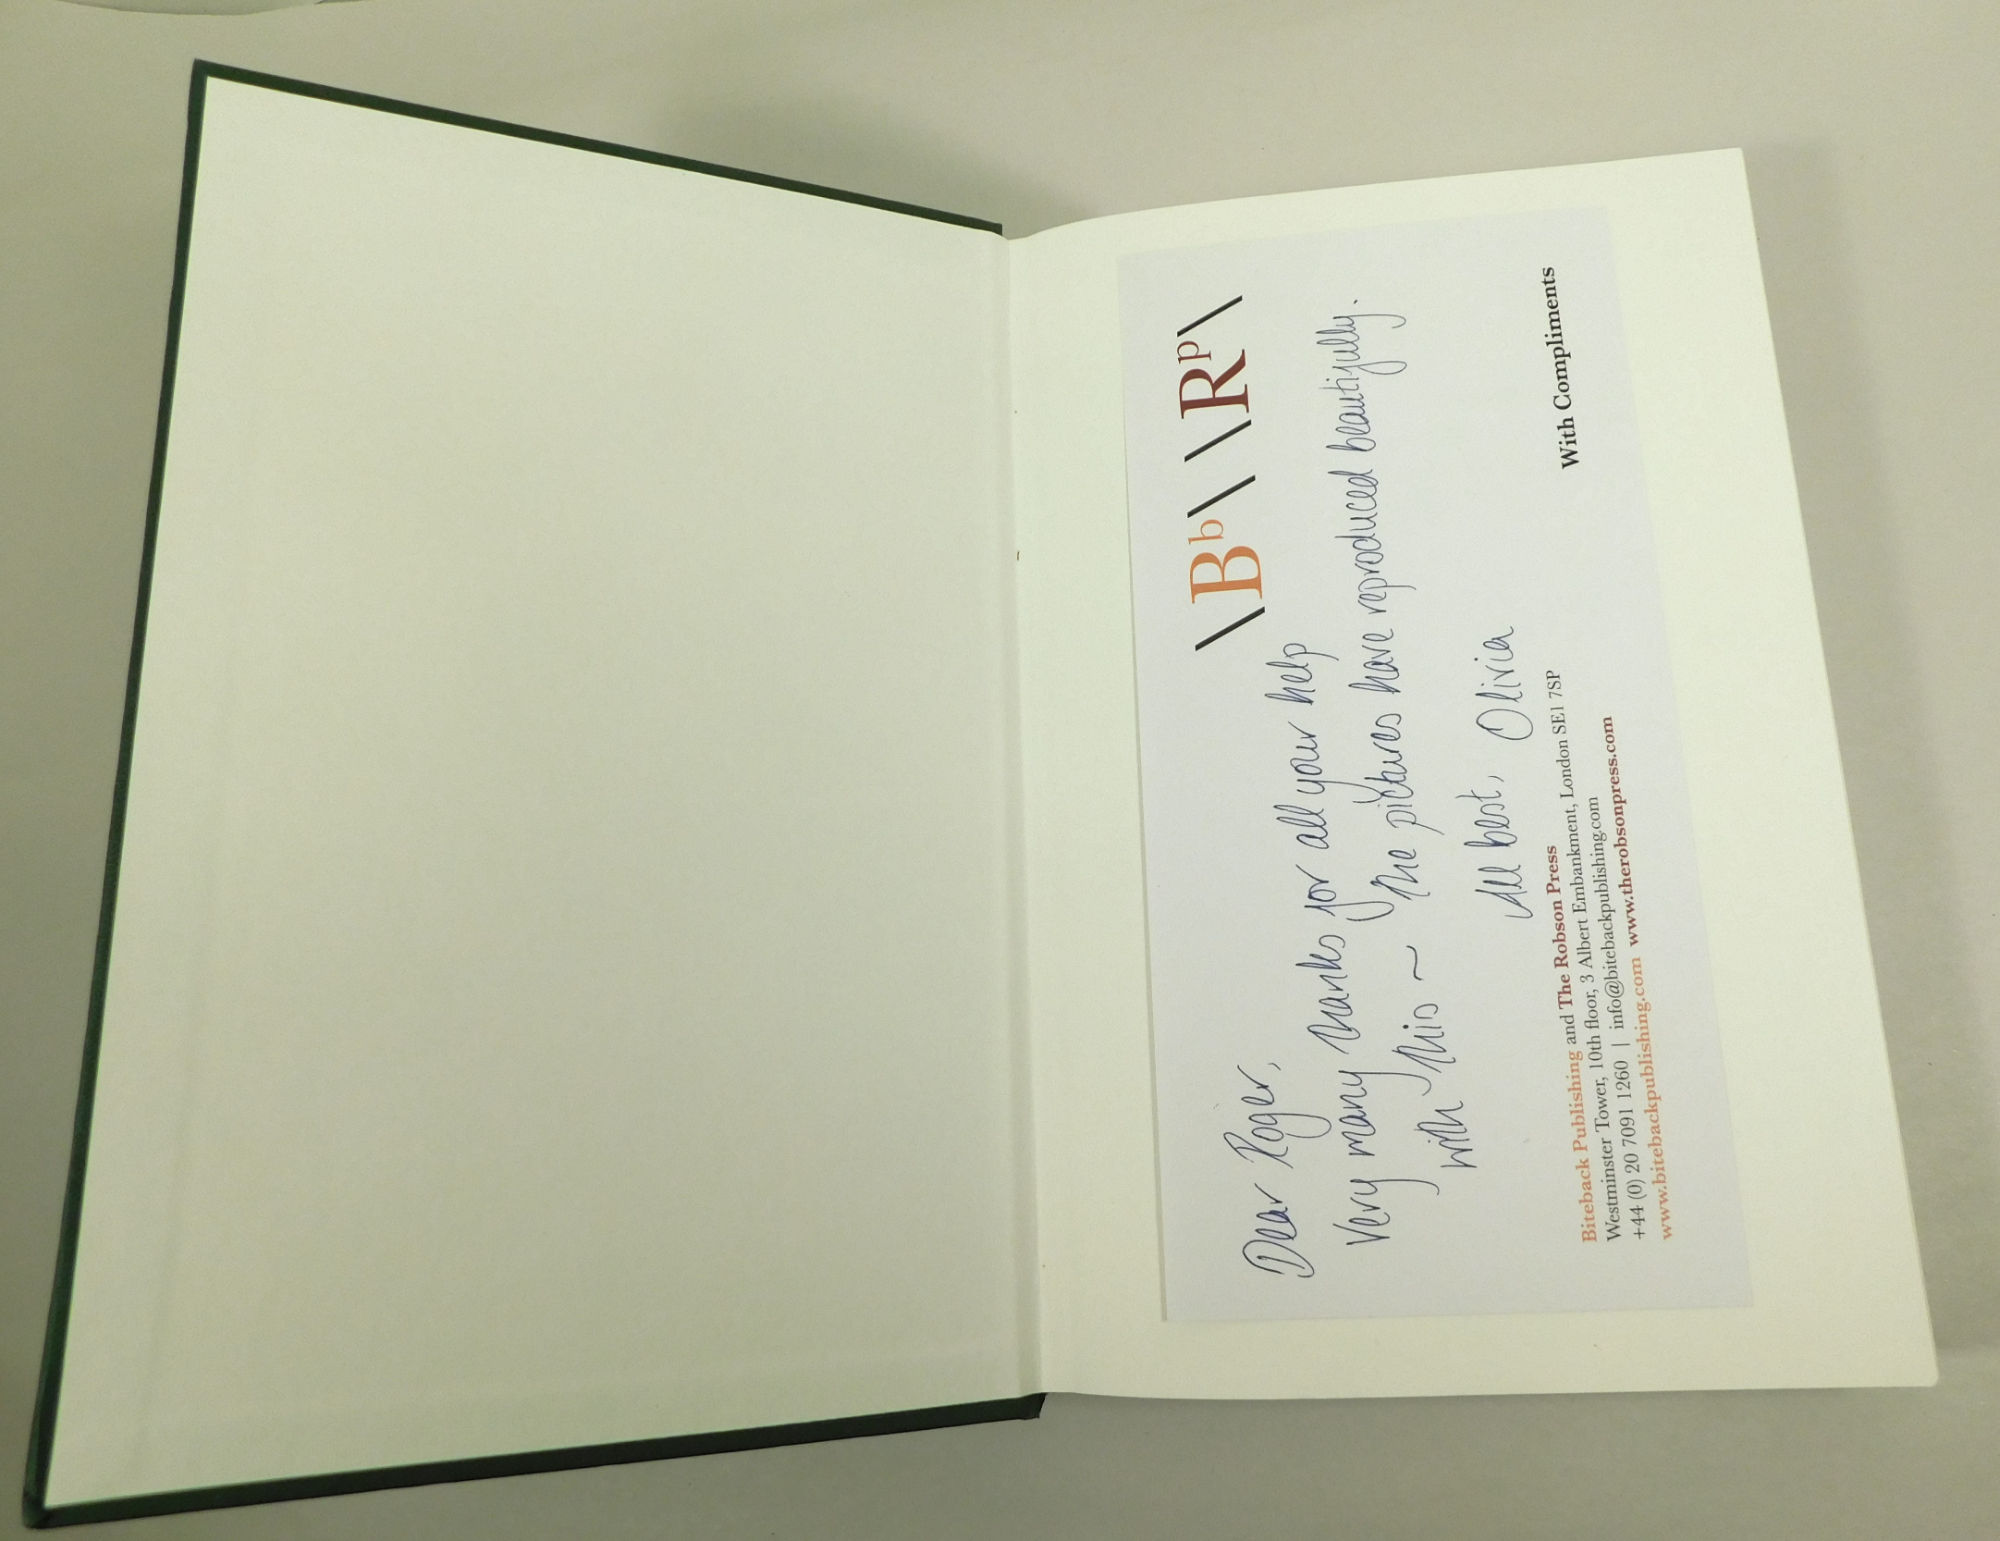 \Bb\ \Rp\
Dear Roger,
Very many thanks for all your help
with this ~ The pictures have reproduced beautifully.
All best, Olivia
Biteback Publishing and The Robson Press
Westminster Tower, 10th floor, 3 Albert Embankment, London SE1 7SP
+44 (0) 20 7091 1260 | info@bitebackpublishing.com
www.bitebackpublishing.com www.therobsonpress.com
With Compliments